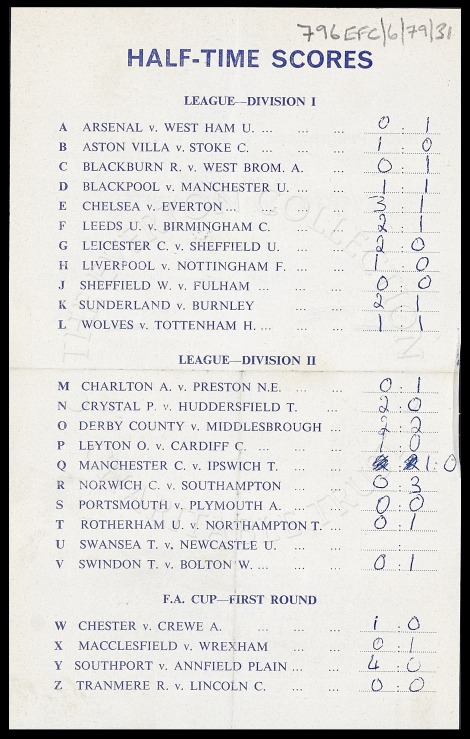 796EFC/6/79/31
HALF-TIME SCORES
LEAGUE—DIVISION I
A ARSENAL v. WEST HAM U. ... ... ... 0 : 1
B ASTON VILLA v. STOKE C. ... ... 1 : 0
C BLACKBURN R. v. WEST BROM. A. ... 0 : 1
D BLACKPOOL v. MANCHESTER U. ... ... 1 : 1
E CHELSEA v. EVERTON ... ... ... 3 : 1
F LEEDS U. v. BIRMINGHAM C. ... ... 2 : 1
G LEICESTER C. v. SHEFFIELD U. ... ... 2 : 0
H LIVERPOOL v. NOTTINGHAM F. ... ... 1 : 0
J SHEFFIELD W. v. FULHAM ... ... ... 0 : 0
K SUNDERLAND v. BURNLEY ... ... 2 : 1
L WOLVES v. TOTTENHAM H. ... ... ... 1 : 1
LEAGUE—DIVISION II
M CHARLTON A. v. PRESTON N.E. ... ... 0 : 1
N CRYSTAL P. v. HUDDERSFIELD T. ... 2 : 0
O DERBY COUNTY v. MIDDLESBROUGH ... ... 2 : 2
P LEYTON O. v. CARDIFF C. ... ... ... 1 : 0
Q MANCHESTER C. v. IPSWICH T. ... ... 1 : 0
R NORWICH C. v. SOUTHAMPTON ... ... 0 : 3
S PORTSMOUTH v. PLYMOUTH A. ... ... 0 : 0
T ROTHERHAM U. v. NORTHAMPTON T. ... ... 0 : 1
U SWANSEA T. v. NEWCASTLE U. ... ... :
V SWINDON T. v. BOLTON W. ... ... ... 0 : 1
F.A. CUP—FIRST ROUND
W CHESTER v. CREWE A. ... ... ... 1 : 0
X MACCLESFIELD v. WREXHAM ... ... 0 : 1
Y SOUTHPORT v. ANNFIELD PLAIN ... ... 4 : 0
Z TRANMERE R. v. LINCOLN C. ... ... 0 : 0